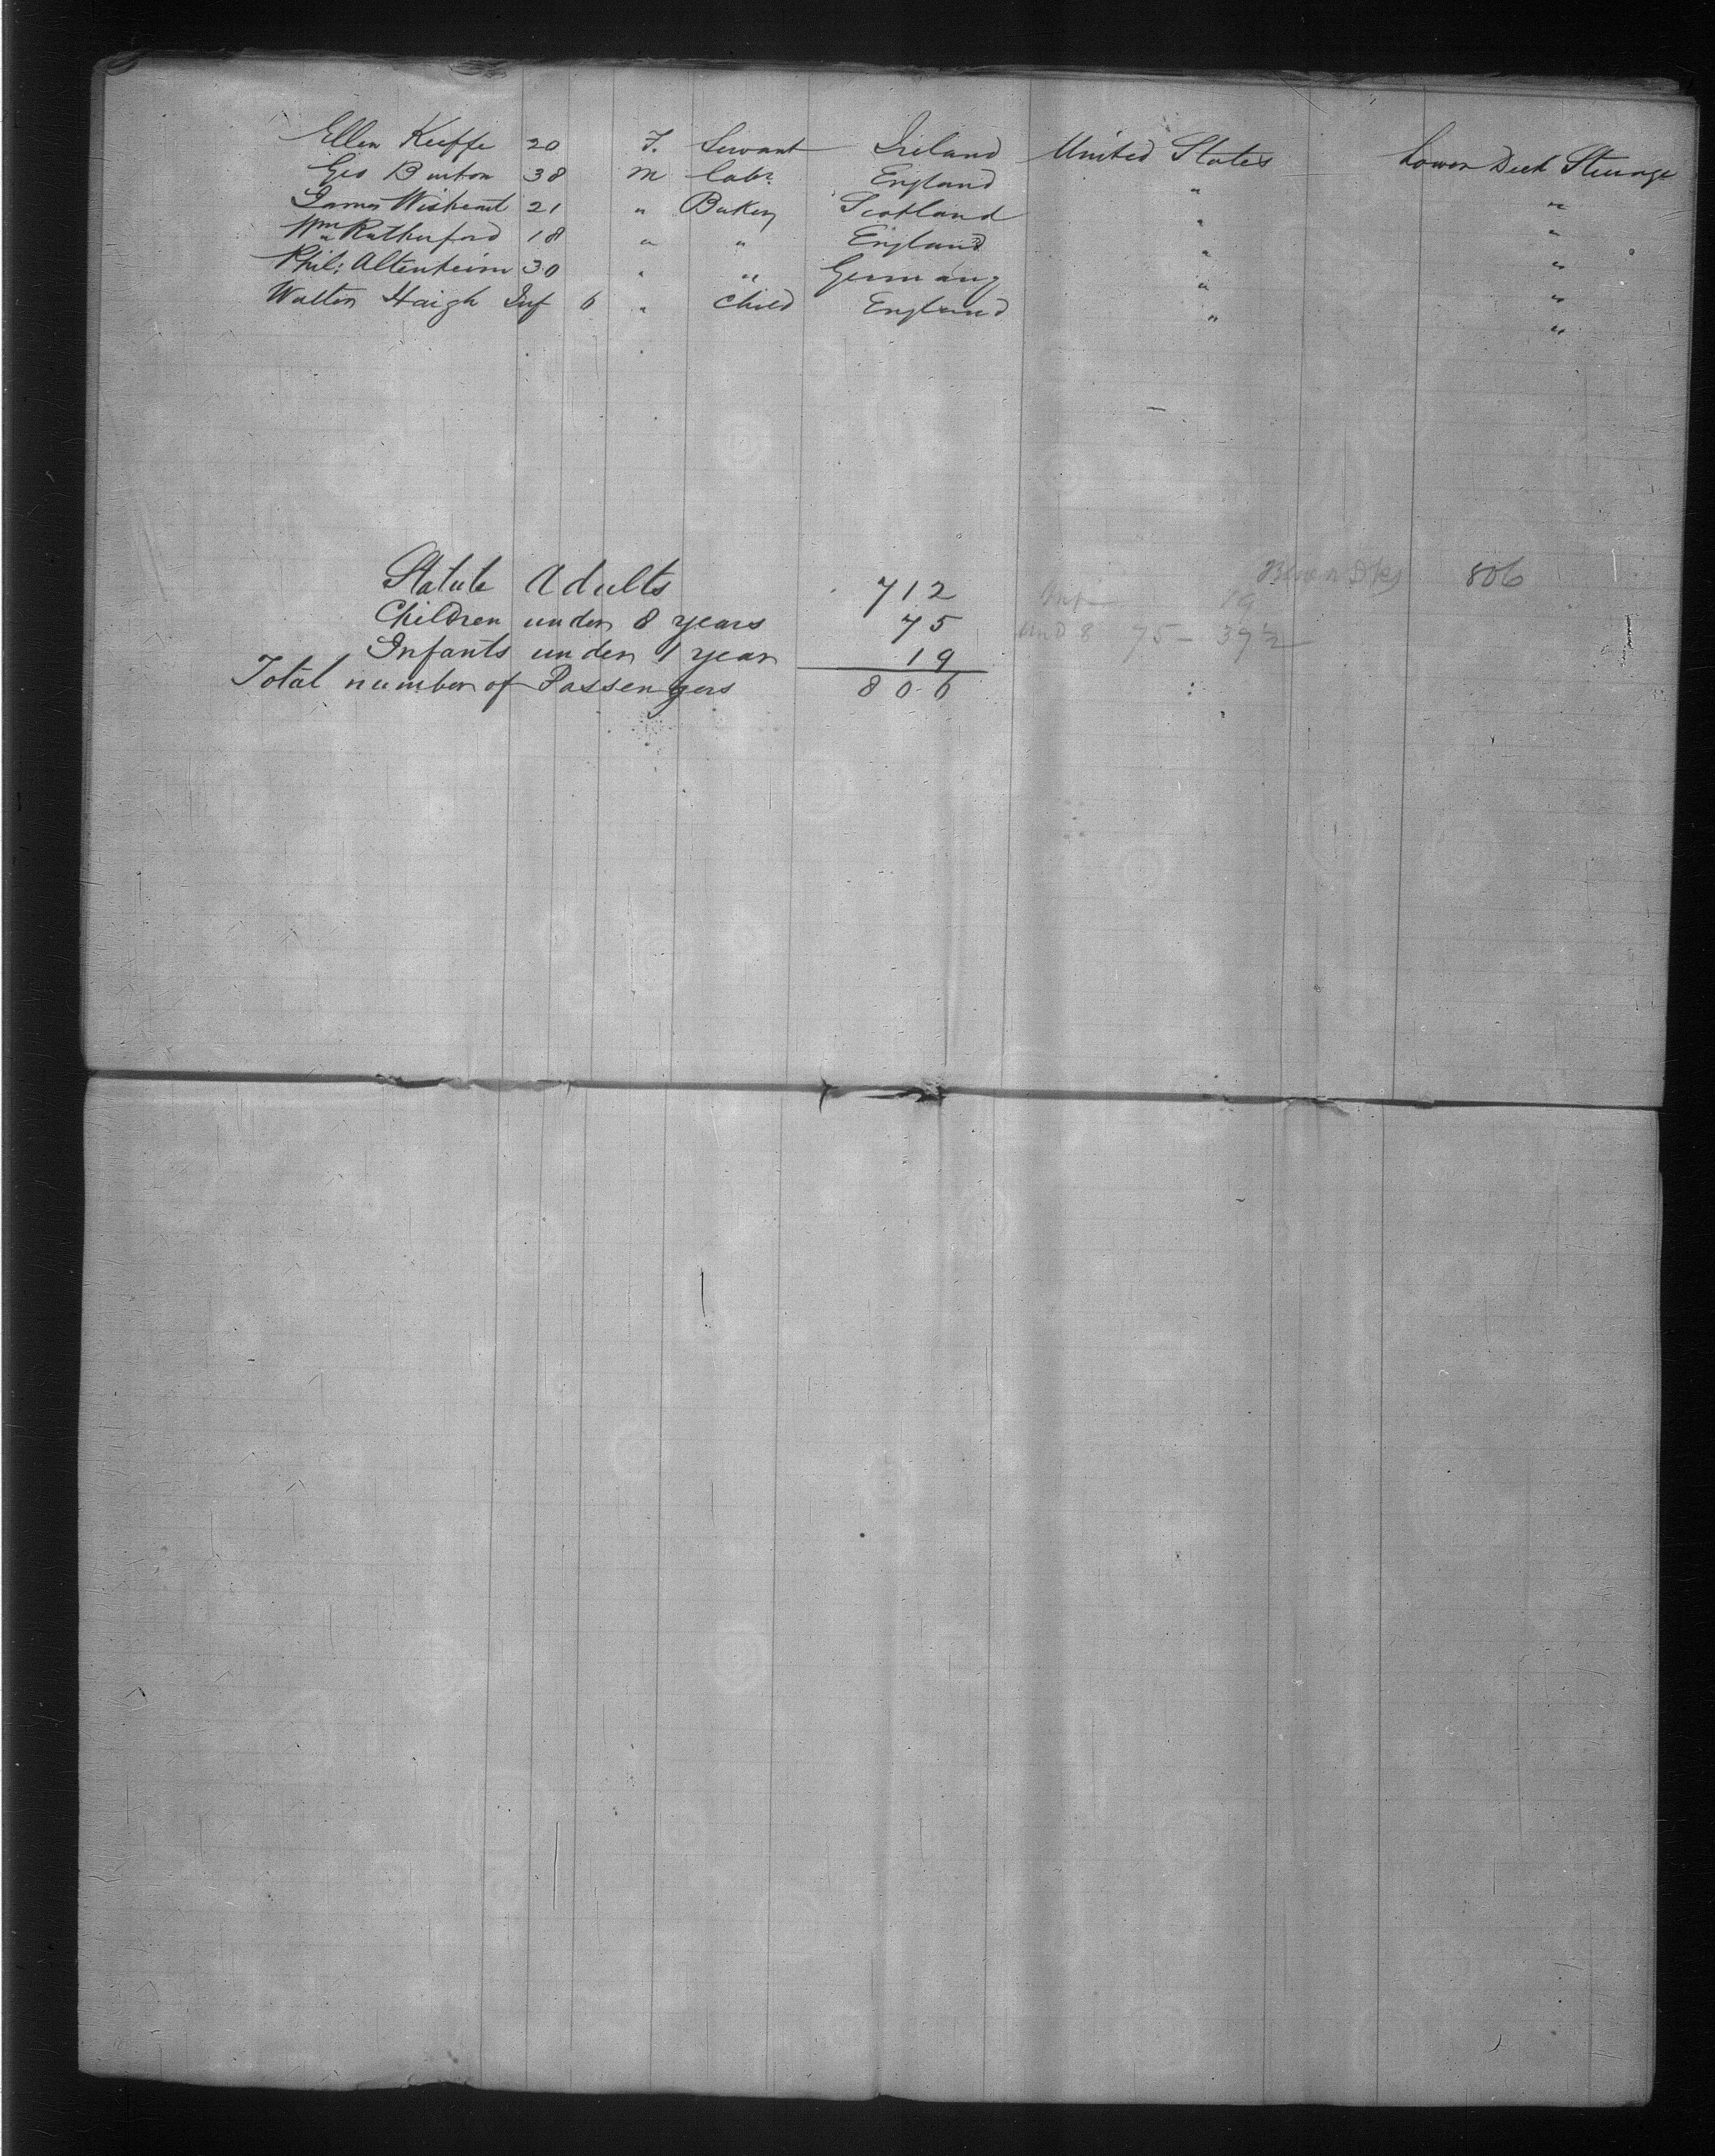 Ellen Keeffe 20 F. Servant Ireland United States Lower Deck Steerage
Geo Burton 38 M Labr. England " "
James Wisheart 21 " Baker Scotland " "
Wm Rutherford 18 " " England " "
Phil: Altenheim 30 " " Germany " "
Walter Haigh Inf 6 " Child England " "
Statute Adults 712 806
Children under 8 years 75
Infants under 1 year 19 und 8 75 - 37 1/2
Total number of Passengers 806